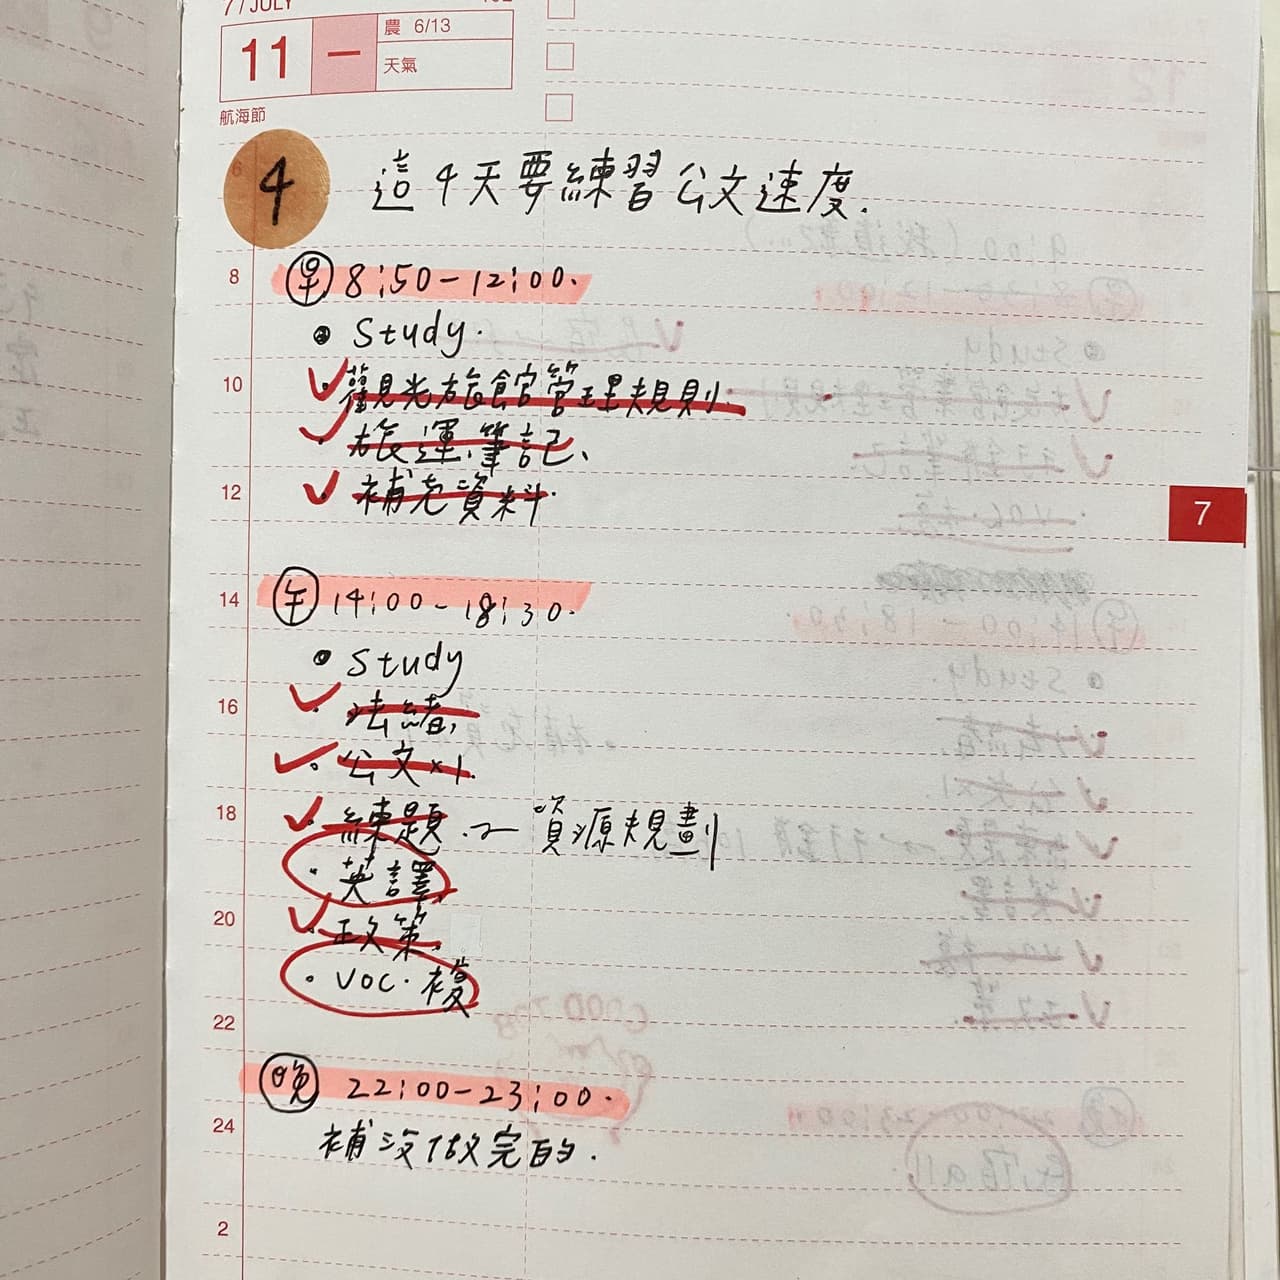 7 / JULY
11 一 農 6/13
天氣
航海節
4 這4天要練習公文速度.
8 早 8:50-12:00.
study.
10 觀光旅館管理規則
旅運筆記、
12 補充資料.
14 午 14:00-18:30.
study
16 法緒,
公文×1.
18 練題.~資源規劃
英譯.
20 政策.
voc.複
22
晚 22:00-23:00.
24 補沒做完的.
2
7